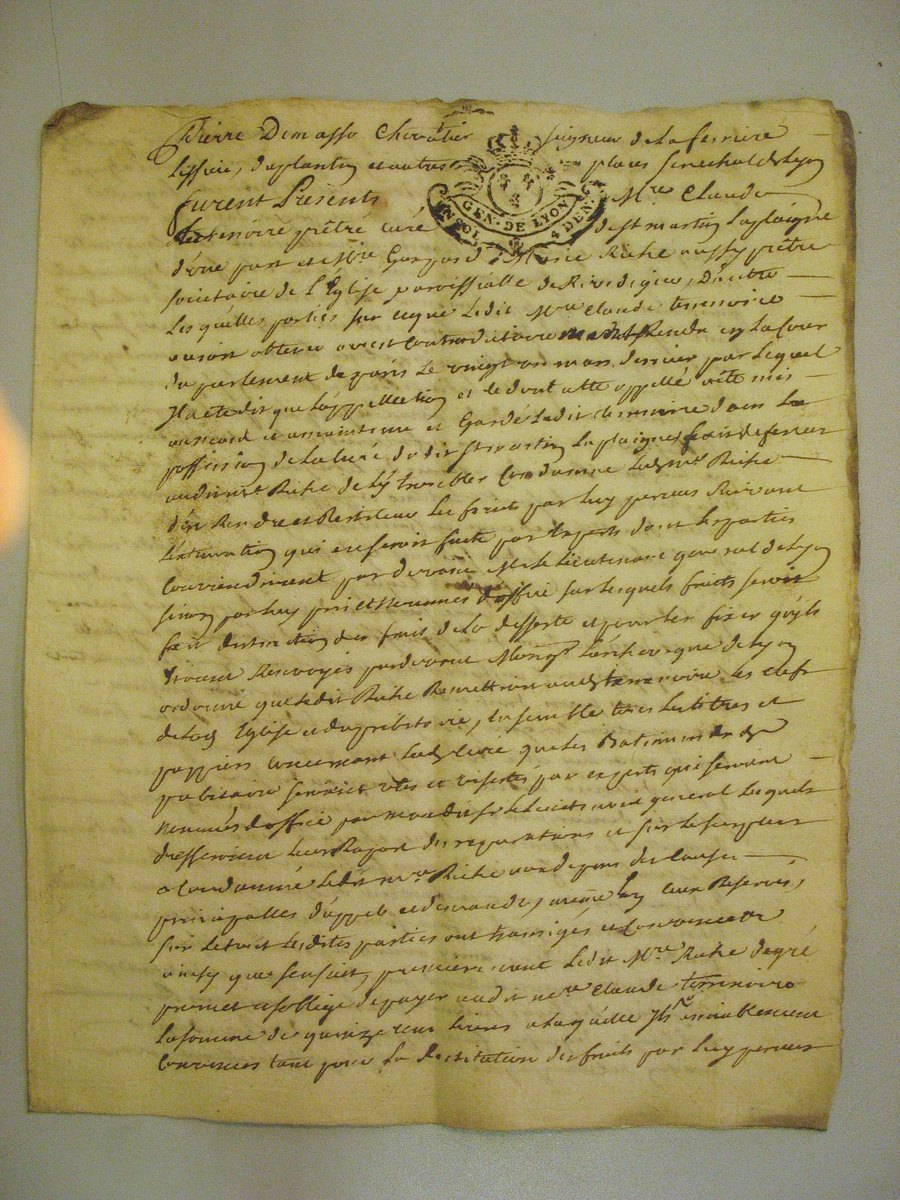 Pierre Demasso Chevalier seigneur de La ferriere
Lissieu, du plantin et autres places Senechal de Lyon
furent Presents Mre Claude
GEN. DE LYON
UN SOL 4 DEN.
terrenoire prêtre curé de st martin La plaigne
d'une part et Mre Gaspard Riche aussy prêtre
societaire de L'Eglise paroissialle de Rivedegier, D'autre
Les quelles parties sur ce que Ledit Mre Claude terrenoire
auroit obtenu arrest Contradictoire Rendu en La Cour
du parlement de paris Le vingt un mars dernier par Lequel
Il a eté dit que L'appellation et ce dont a eté appellé eté mis
au neant et maintenu et Gardé Ledit terrenoire dans La
possession de La Curé dudit St martin La plaigne, fait deffenses
audit Mre Riche de L'y troubler Condamné Ledt Mre Riche
d'en Rendre et Restituer Les fruits par Luy perceus suivant
L'estimation qui en seroit faite par Experts dont Les parties
Conviendroient par devant Mr Le Lieutenant general de Lyon
sinon par Luy pris et Nommés d'office sur Lesquels fruits seroit
fait distraction des frais de La desserte et pour Les fixer qu'ils
seroient Renvoyés pardevant Monsgr L'archeveque de Lyon
ordonné que Ledit Riche Remettroit audt terrenoire Les clefs
de Lad Eglise et du presbitaire, ensemble tous Les titres et
pappiers Concernant Ladt Curé que Les Batimens dudt
presbitaire seroient vus et visités par experts qui seroient
Nommés d'office par mondit sr Le Lieutenant general Lesquels
dresseroient Leur Raport des reparations et sur Le surplus
a Condamné Ledit Mre Riche aux depens des Causes
principalles d'appel et demande,
sur Le tout Lesdites parties ont transigés et Convenus
ainsy que s'ensuit, premierement Ledit Mre Riche de gré
promet et s'oblige de payer audit Mre Claude terrenoire
La somme de quinze cent Livres a Laquelle Ils amiablement
Convenus tant pour La Restitution des fruits par Luy perceus